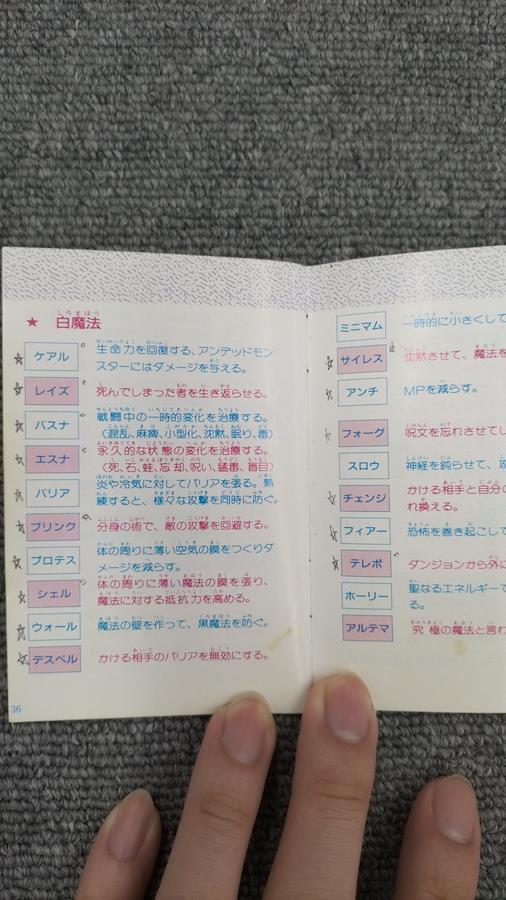 ★ 白魔法
ケアル 生命力を回復する、アンデッドモン
スターにはダメージを与える。
レイズ 死んでしまった者を生き返らせる。
バスナ 戦闘中の一時的変化を治療する。
(混乱、麻痺、小型化、沈黙、眠り、毒)
エスナ 永久的な状態の変化を治療する。
(死、石、蛙、忘却、呪い、猛毒、盲目)
バリア 炎や冷気に対してバリアを張る。熟
練すると、様々な攻撃を同時に防ぐ。
ブリンク 分身の術で、敵の攻撃を回避する。
プロテス 体の周りに薄い空気の膜をつくりダ
メージを減らす。
シェル 体の周りに薄い魔法の膜を張り、
魔法に対する抵抗力を高める。
ウォール 魔法の壁を作って、黒魔法を防ぐ。
デスペル かける相手のバリアを無効にする。
36
ミニマム 一時的に小さくして
サイレス 沈黙させて、魔法を
アンチ MPを減らす。
フォーグ 呪文を忘れさせてし
スロウ 神経を鈍らせて、攻
チェンジ かける相手と自分の
れ換える。
フィアー 恐怖を巻き起こして
テレポ ダンジョンから外に
ホーリー 聖なるエネルギーで
る。
アルテマ 究極の魔法と言わ